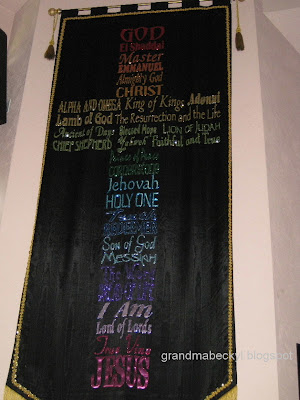 GOD
El Shaddai
Master
EMMANUEL
Almighty God
CHRIST
ALPHA AND OMEGA King of Kings Adonai
Lamb of God The Resurrection and the Life
Ancient of Days Blessed Hope LION OF JUDAH
CHIEF SHEPHERD Yahweh Faithful and True
Prince of Peace
Jehovah
HOLY ONE
REDEEMER
Son of God
MESSIAH
The Word
I Am
Lord of Lords
True Vine
JESUS
grandmabeckyl.blogspot